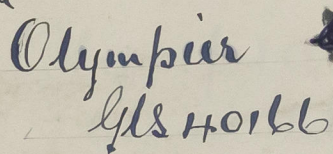 Olympier
GLS 40166